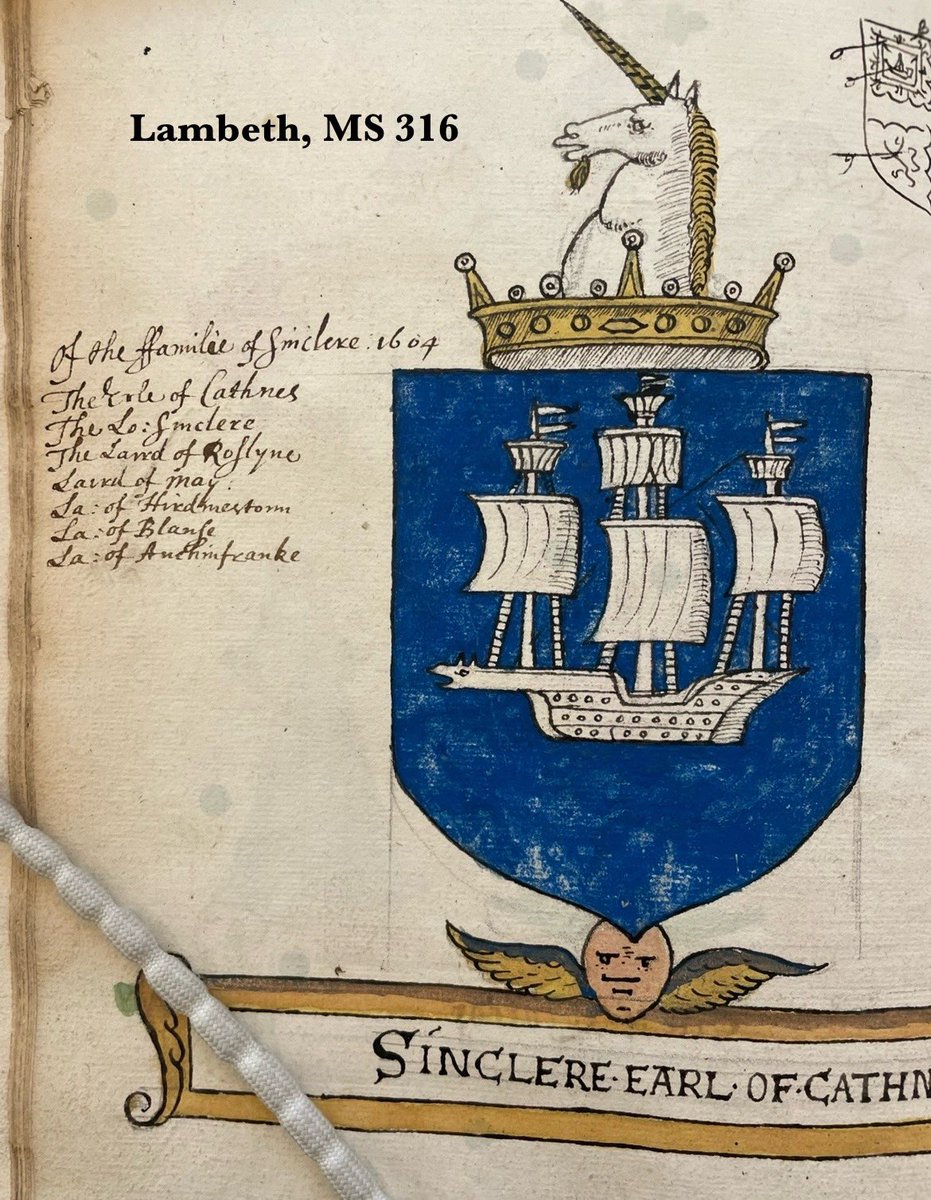 Lambeth, MS 316
Of the ffamilie of Sinclere: 1604
The Erle of Cathnes
The Lo: Sinclere
The Laird of Roslyne
Laird of may:
La: of Hirdmestonn
La: of Blanse
La: of Auchinfranke
SINCLERE·EARL·OF·CATHN